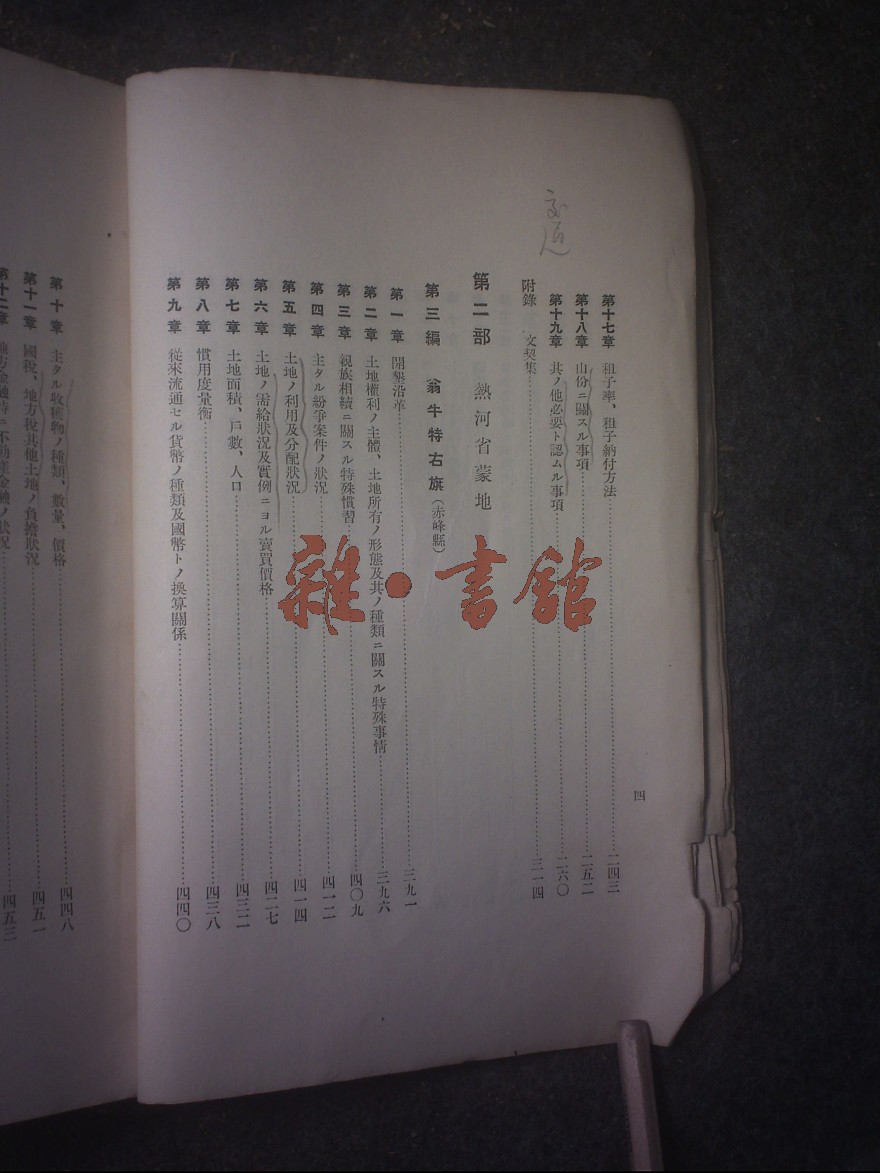 第十七章 租子率、租子納付方法 二四三
第十八章 山份ニ關スル事項 二五二
第十九章 其ノ他必要ト認ムル事項 二六〇
附錄 文契集 三一四
第二部 熱河省蒙地
第三編 翁牛特右旗（赤峰縣）
第一章 開墾沿革 三九一
第二章 土地權利ノ主體、土地所有ノ形態及其ノ種類ニ關スル特殊事情 三九六
第三章 親族相續ニ關スル特殊慣習 四〇九
第四章 主タル紛爭案件ノ狀況 四一二
第五章 土地ノ利用及分配狀況 四一四
第六章 土地ノ需給狀況及實例ニヨル賣買價格 四二七
第七章 土地面積、戶數、人口 四三二
第八章 慣用度量衡 四三八
第九章 從來流通セル貨幣ノ種類及國幣トノ換算關係 四四〇
四
第十章 主タル收穫物ノ種類、數量、價格 四四八
第十一章 國稅、地方稅其他土地ノ負擔狀況 四五一
第十二章 不動產金融ノ狀況 四五三
雜·書館